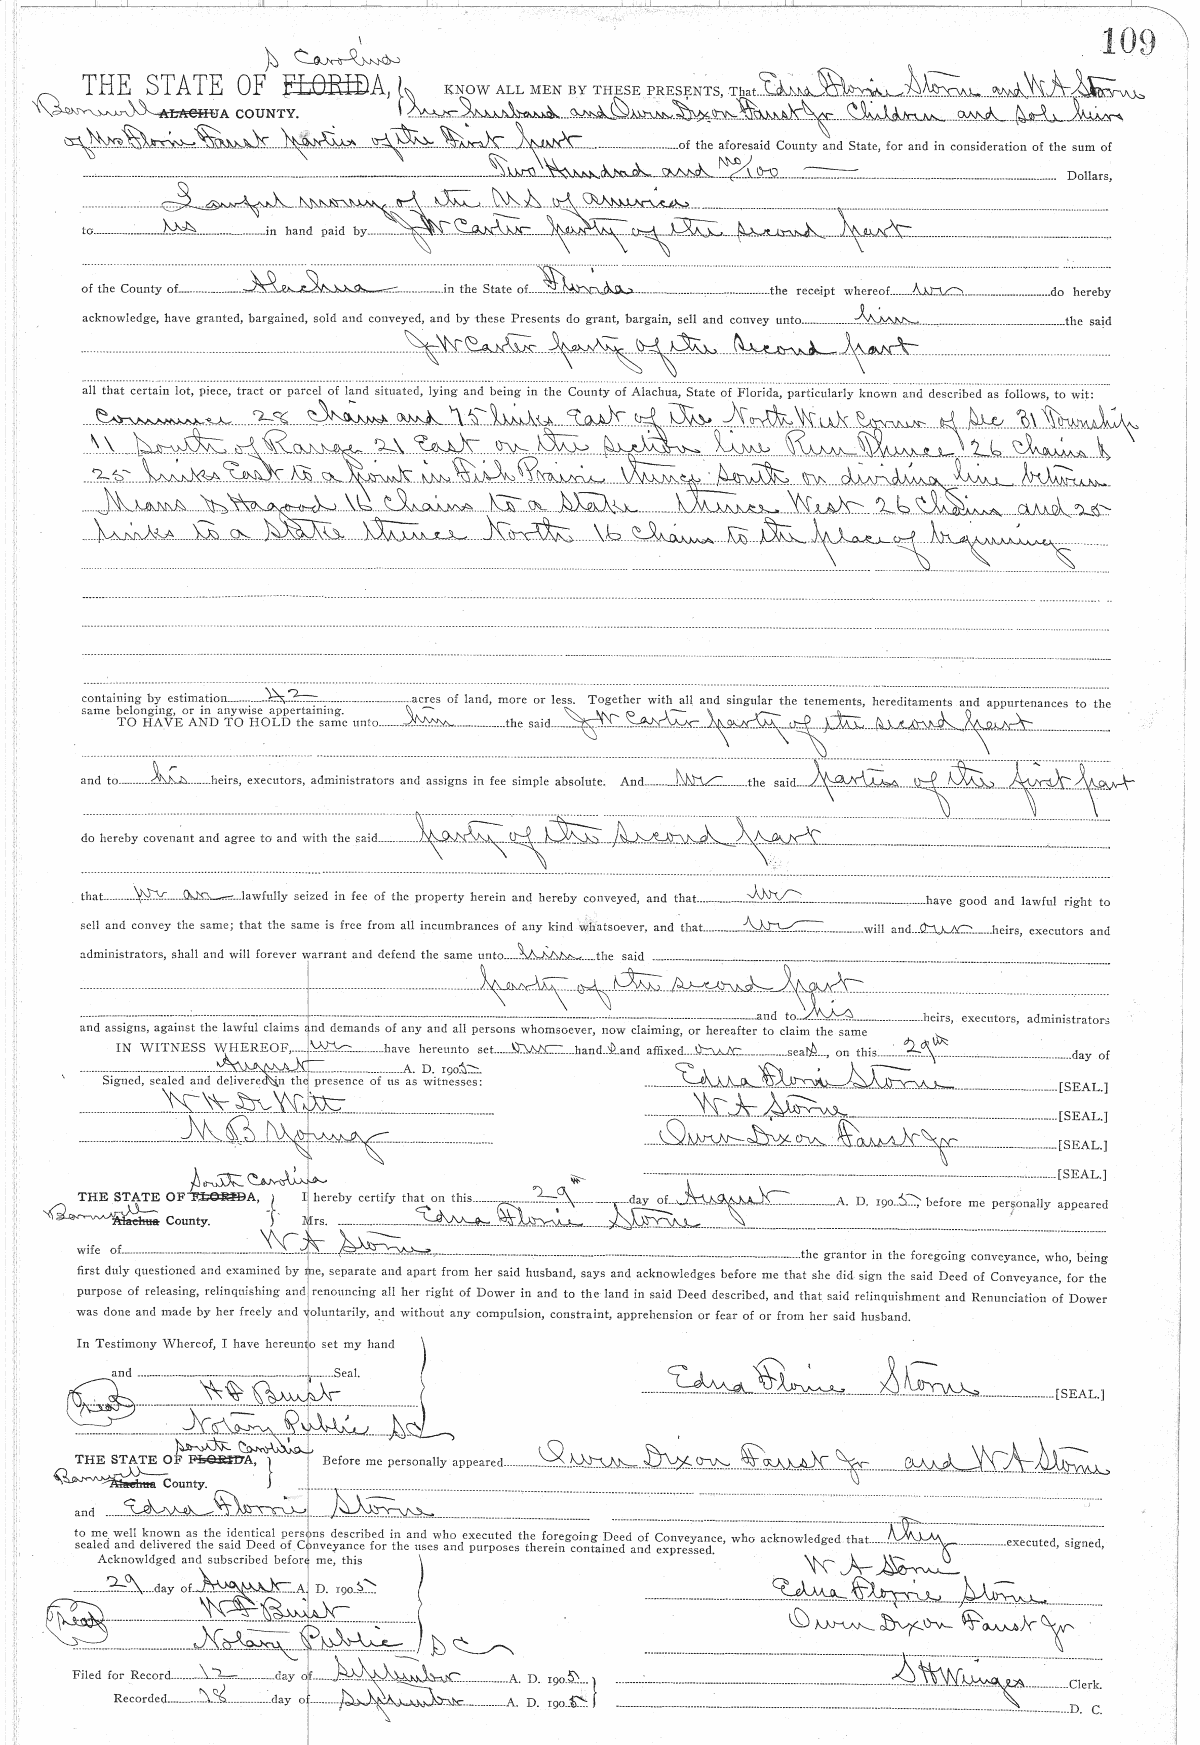 109
S Carolina
THE STATE OF FLORIDA, KNOW ALL MEN BY THESE PRESENTS, That Edna Florrie Storne and W A Storne
Barnwell ALACHUA COUNTY. her husband and Owen Dixon Faust Jr Children and sole heirs
of Mrs Florrie Faust parties of the First part of the aforesaid County and State, for and in consideration of the sum of
Two Hundred and no/100 Dollars,
Lawful money of the U S of America
to us in hand paid by J W Carter party of the second part
of the County of Alachua in the State of Florida the receipt whereof we do hereby
acknowledge, have granted, bargained, sold and conveyed, and by these Presents do grant, bargain, sell and convey unto him the said
J W Carter party of the second part
all that certain lot, piece, tract or parcel of land situated, lying and being in the County of Alachua, State of Florida, particularly known and described as follows, to wit:
Commence 28 Chains and 75 links East of the North West Corner of Sec 31 Township
11 South of Range 21 East on the section line Run Thence 26 Chains &
25 links East to a point in Fish Prairie thence South on dividing line between
Means & Hagood 16 Chains to a Stake thence West 26 Chains and 25
links to a Stake thence North 16 Chains to the place of beginning
containing by estimation 42 acres of land, more or less. Together with all and singular the tenements, hereditaments and appurtenances to the
same belonging, or in anywise appertaining.
TO HAVE AND TO HOLD the same unto him the said J W Carter party of the second part
and to his heirs, executors, administrators and assigns in fee simple absolute. And we the said parties of the first part
do hereby covenant and agree to and with the said party of the second part
that we are lawfully seized in fee of the property herein and hereby conveyed, and that we have good and lawful right to
sell and convey the same; that the same is free from all incumbrances of any kind whatsoever, and that we will and our heirs, executors and
administrators, shall and will forever warrant and defend the same unto him the said
party of the second part
and to his heirs, executors, administrators
and assigns, against the lawful claims and demands of any and all persons whomsoever, now claiming, or hereafter to claim the same
IN WITNESS WHEREOF, we have hereunto set our hand s and affixed our seals, on this 29th day of
August A. D. 1905
Signed, sealed and delivered in the presence of us as witnesses: Edna Florrie Storne [SEAL.]
W H De Witt W A Storne [SEAL.]
M B Young Owen Dixon Faust Jr [SEAL.]
[SEAL.]
South Carolina
THE STATE OF FLORIDA, I hereby certify that on this 29th day of August A. D. 1905, before me personally appeared
Barnwell Alachua County. Mrs. Edna Florrie Storne
wife of W A Storne the grantor in the foregoing conveyance, who, being
first duly questioned and examined by me, separate and apart from her said husband, says and acknowledges before me that she did sign the said Deed of Conveyance, for the
purpose of releasing, relinquishing and renouncing all her right of Dower in and to the land in said Deed described, and that said relinquishment and Renunciation of Dower
was done and made by her freely and voluntarily, and without any compulsion, constraint, apprehension or fear of or from her said husband.
In Testimony Whereof, I have hereunto set my hand
and Seal. Edna Florrie Storne [SEAL.]
Buist
Notary Public S C
South Carolina
THE STATE OF FLORIDA, Before me personally appeared Owen Dixon Faust Jr and W A Storne
Barnwell Alachua County.
and Edna Florrie Storne
to me well known as the identical persons described in and who executed the foregoing Deed of Conveyance, who acknowledged that they executed, signed,
sealed and delivered the said Deed of Conveyance for the uses and purposes therein contained and expressed.
Acknowldged and subscribed before me, this W A Storne
29 day of August A. D. 1905 Edna Florrie Storne
Buist Owen Dixon Faust Jr
Notary Public S C
Filed for Record 12 day of September A. D. 1905 S H Wienges Clerk.
Recorded 28 day of September A. D. 1905 D. C.